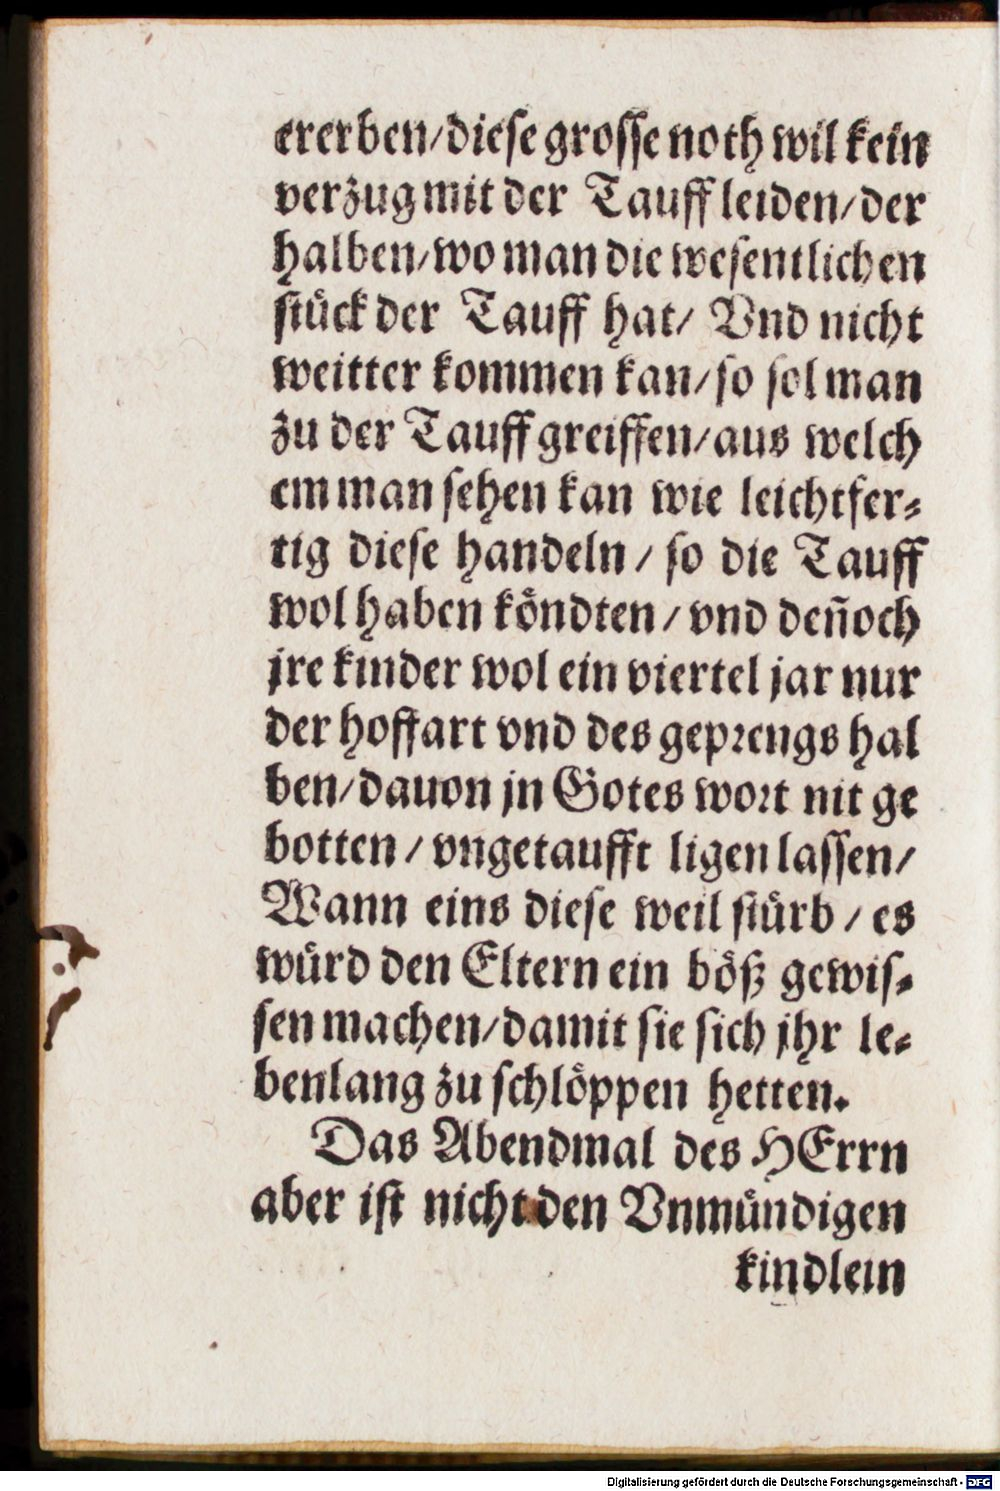 ererben/diese grosse noth wil kein
verzug mit der Tauff leiden/der
halben/wo man die wesentlichen
stück der Tauff hat/ Vnd nicht
weitter kommen kan/so sol man
zu der Tauff greiffen/aus welch
em man sehen kan wie leichtfer⸗
tig diese handeln / so die Tauff
wol haben köndten / vnd deñoch
jre kinder wol ein viertel jar nur
der hoffart vnd des geprengs hal
ben/dauon jn Gotes wort nit ge
botten / vngetaufft ligen lassen/
Wann eins diese weil stürb / es
würd den Eltern ein böß gewis⸗
sen machen/damit sie sich jhr le⸗
benlang zu schlöppen hetten.
Das Abendmal des HErrn
aber ist nicht den Vnmündigen
kindlein
Digitalisierung gefördert durch die Deutsche Forschungsgemeinschaft - DFG